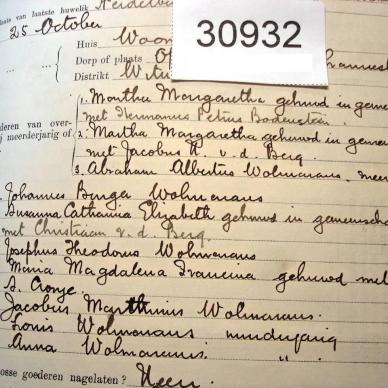 laats van laatste huwelik Heidelber
25 October
30932
Huis Woon
Dorp of plaats
Distrikt Witw
1. Martha Margaretha gehuwd in gemeen
met Hermanus Petrus Bodenstein.
deren van over-
ij meerderjarig of
2. Martha Margaretha gehuwd in gemeen
met Jacobus H. v. d. Berg.
3. Abraham Albertus Wolmarans, meer
Johannes Burger Wolmarans
Susanna Catharina Elizabeth gehuwd in gemeenscha
met Christiaan v. d. Berg.
Josephus Theodorus Wolmarans
Maria Magdalena Francina gehuwd met
S. Cronje.
Jacobus Marthinus Wolmarans.
Louis Wolmarans minderjarig
Anna Wolmarans. "
osse goederen nagelaten? Neen.